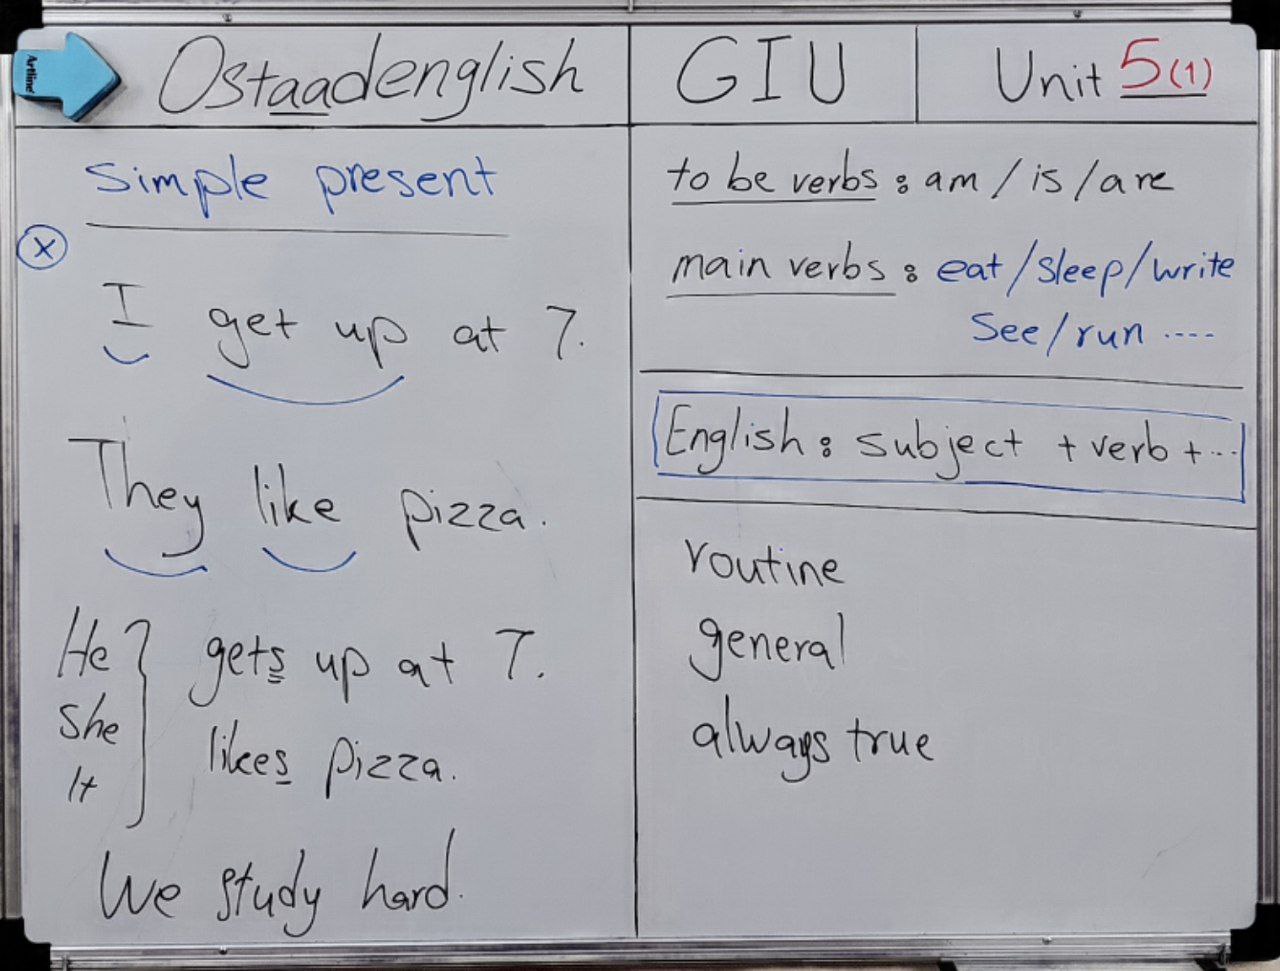 Artline
Ostaadenglish
GIU
Unit 5(1)
simple present
x
I get up at 7.
They like pizza.
He
she
It
gets up at 7.
likes pizza.
We study hard.
to be verbs : am / is / are
main verbs : eat / sleep / write
see / run ....
English : subject + verb + ...
routine
general
always true